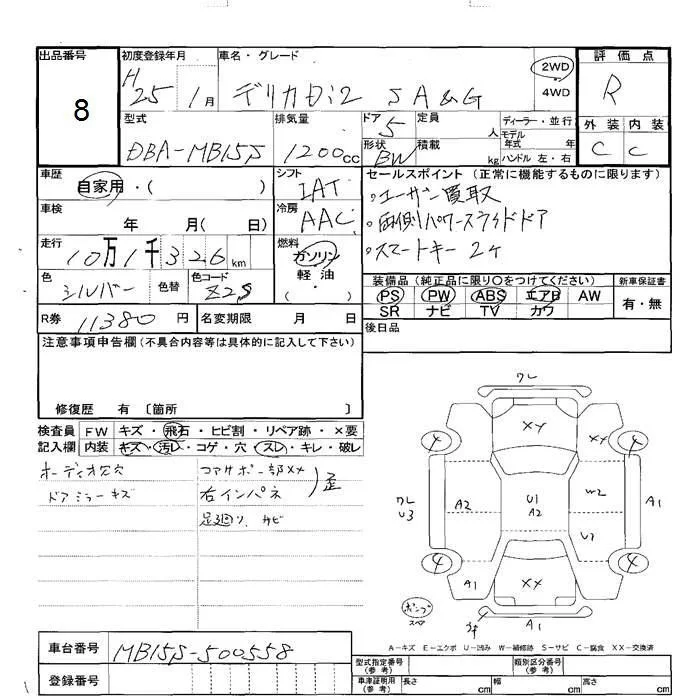 出品番号
8
初度登録年月
H 25年 1月
車名・グレード
デリカD:2 S A&G
2WD
4WD
評価点
R
外装 内装
C C
型式
DBA-MB15S
排気量
1200cc
ドア 5
形状 BW
定員 人
積載 kg
ディーラー・並行
モデル年式 年
ハンドル 左・右
車歴
自家用・( )
シフト
IAT
車検
年 月( 日)
冷房
AAC
走行
10万1千326km
燃料
ガソリン
軽油
( ・ )
色
シルバー
色替
色コード
Z2S
R券 11380円
名変期限 月 日
セールスポイント (正常に機能するものに限ります)
。ユーザー買取
。両側パワースライドドア
。スマートキー2ヶ
装備品(純正品に限り〇をつけてください)
PS PW ABS エアB AW
SR ナビ TV カワ
新車保証書
有・無
後日品
注意事項申告欄(不具合内容等は具体的に記入して下さい)
修復歴 有 〔箇所 〕
検査員記入欄
FW キズ・飛石・ヒビ割・リペア跡・×要
内装 キズ・汚レ・コゲ・穴・スレ・キレ・破レ
オーディオ欠穴
ドアミラーキズ
コアサポ一部XX
右インパネ
)歪
足廻り、サビ
ワレ
XY
XY
4
4
ワレ
U3
A2
U1
A2
W2
A1
U3
4
4
A1
XX
ポンプ
スペア
A1
A-キズ E-エクボ U-凹み W-補修跡 S-サビ C-腐食 XX-交換済
車台番号
MB15S-500558
登録番号
型式指定番号(参考)
類別区分番号(参考)
車庫証明用(参考)
長さ cm
幅 cm
高さ cm